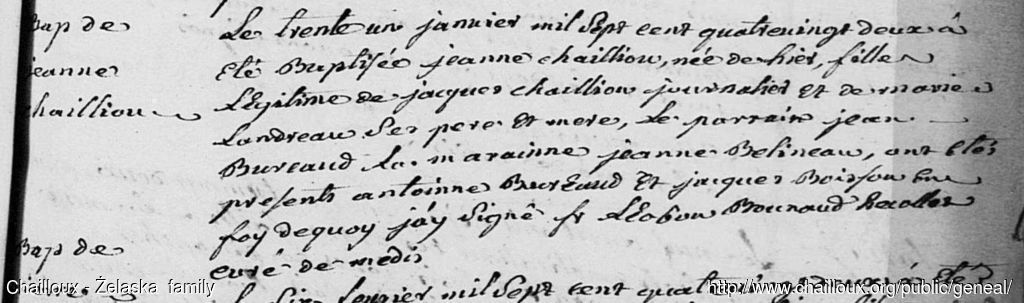 Bap de
jeanne
chailliou
Le trente un janvier mil Sept cent quatrevingt deux â
Eté Baptisée jeanne chailliou, née de hier, fille
Légitime de jacques chailliou journalier Et de marie
Landreau Ses pere Et mere, Le parrain jean
Bureaud La marainne jeanne Belineau, ont étés
presents antoinne Bureaud Et jacques Boisson En
foy dequoy j'áy Signê fr Bounaud
curé de medis
Bap de
Le Six fevrier mil Sept cent quatrevingt deux Eté
Chailloux - Żelaska family
http://www.chailloux.org/public/geneal/